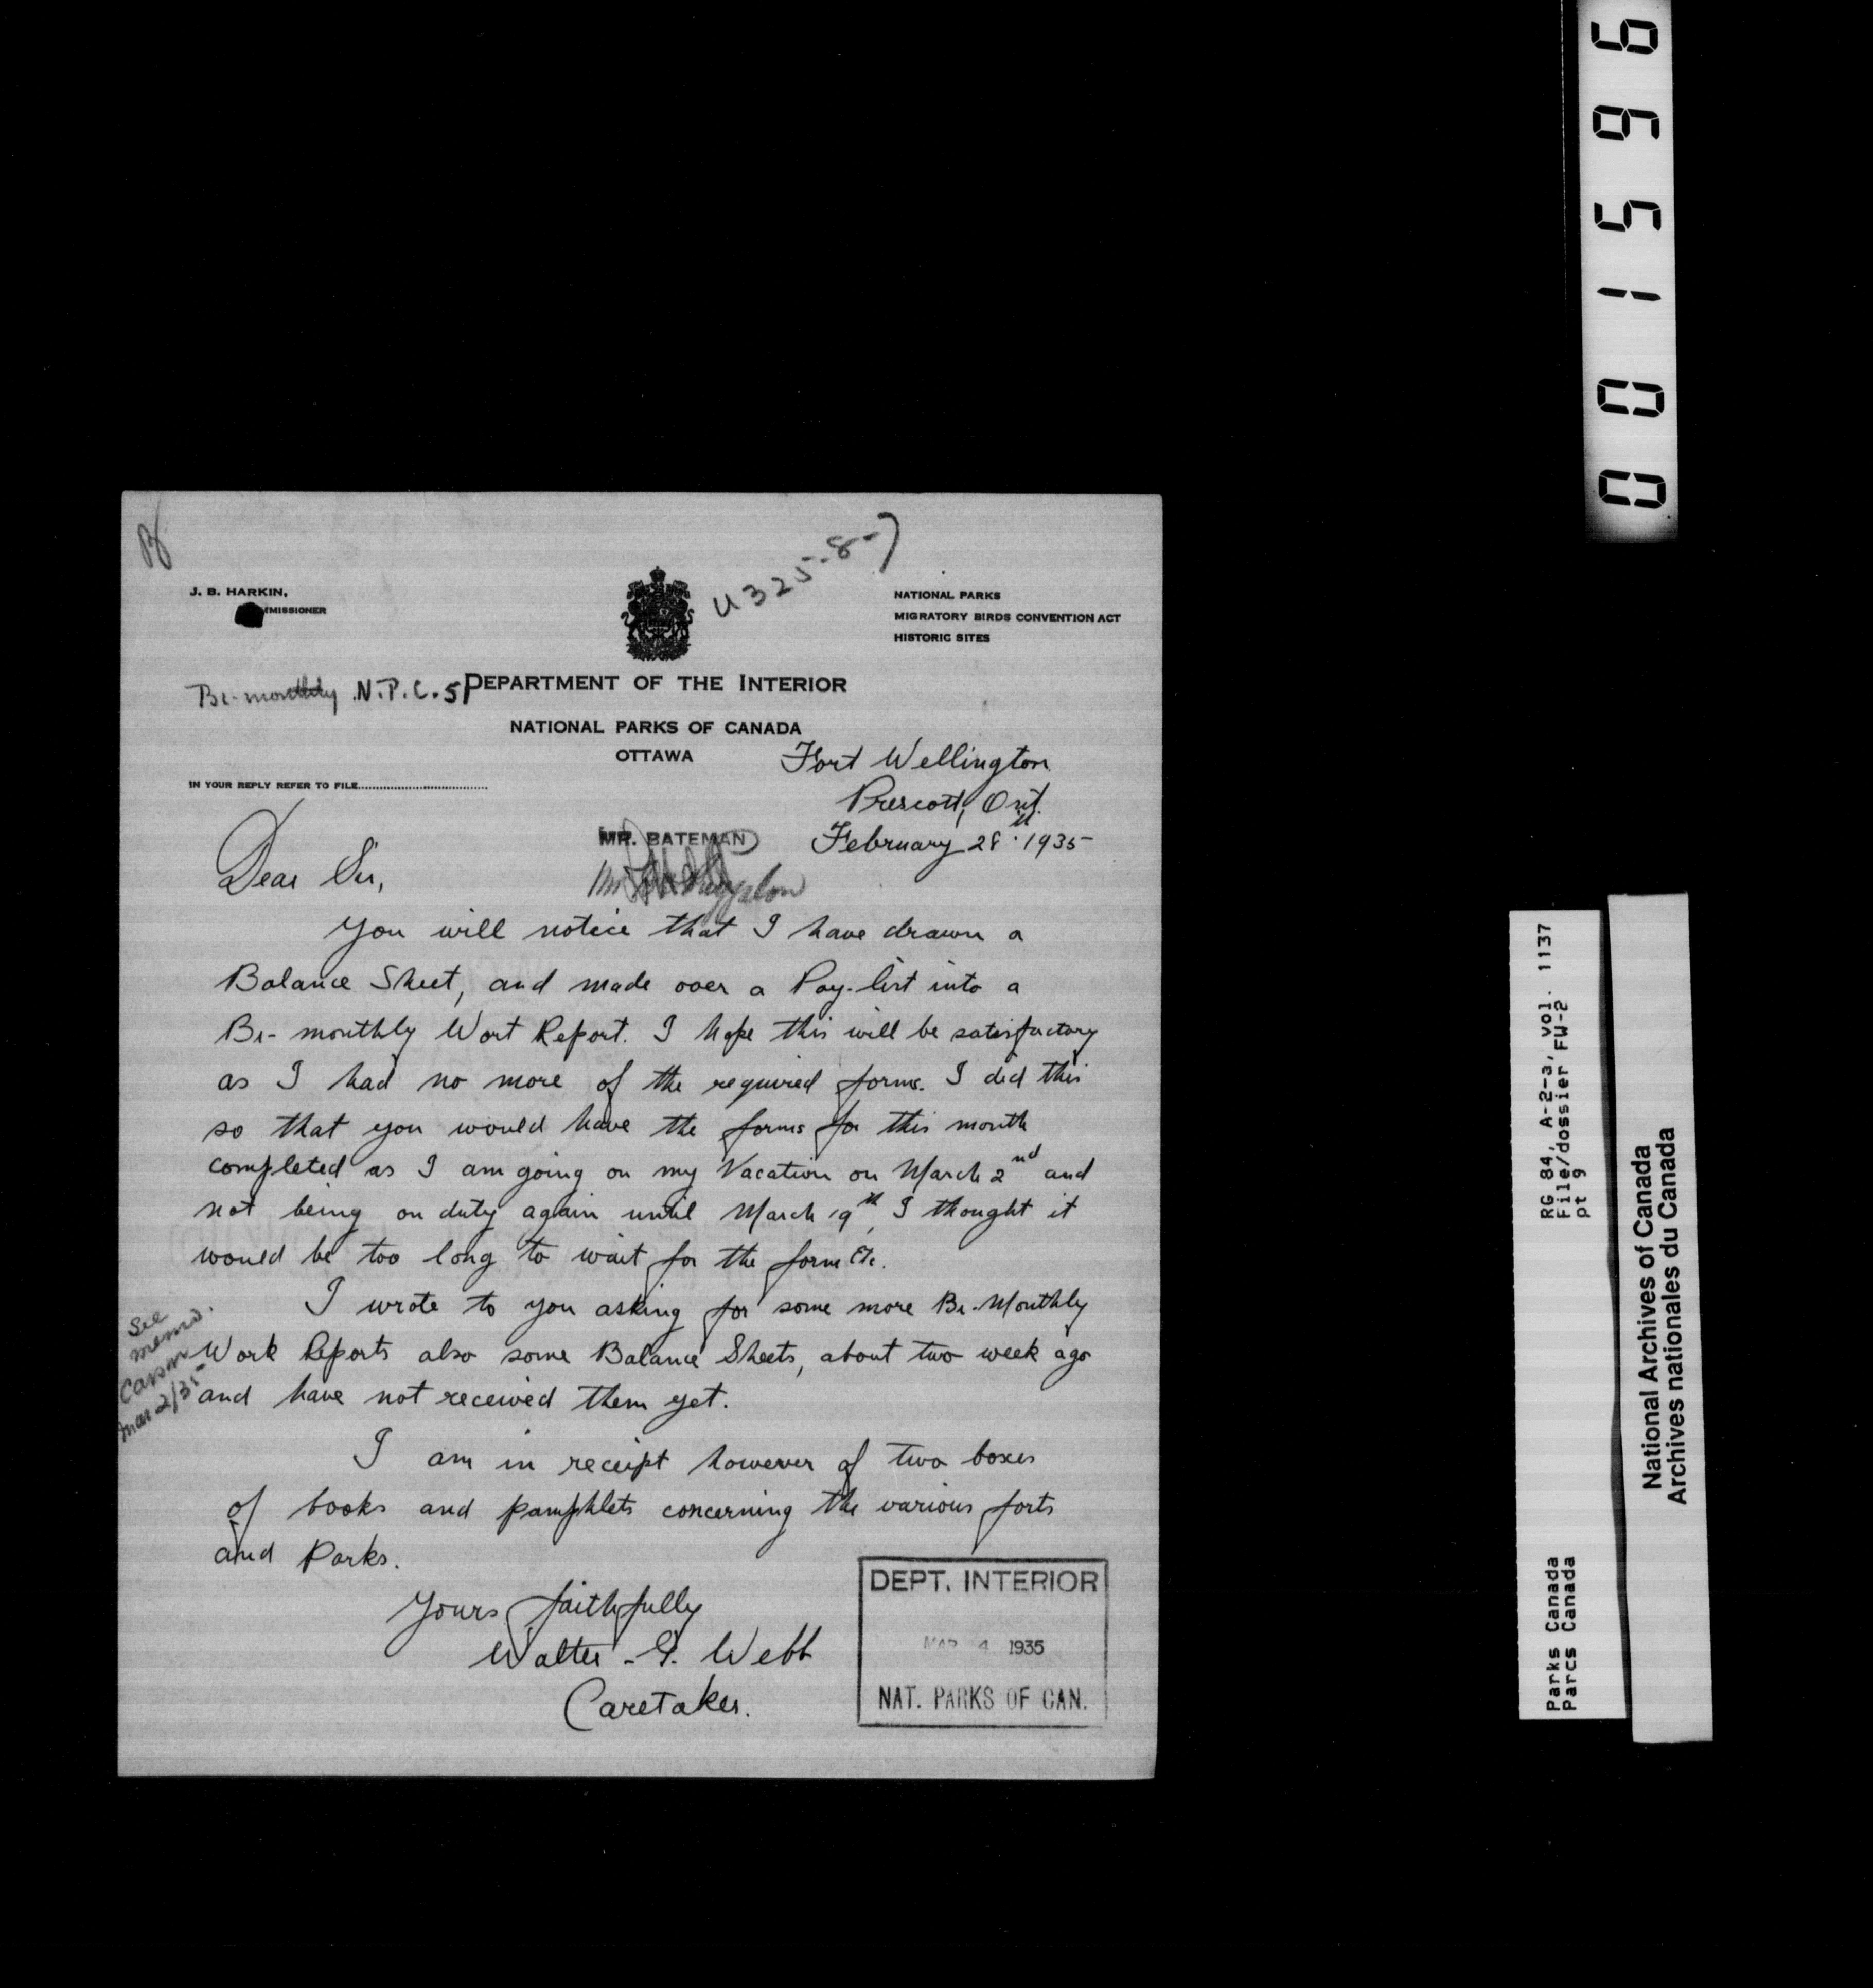 U325-8-7
J. B. HARKIN,
MMISSIONER
NATIONAL PARKS
MIGRATORY BIRDS CONVENTION ACT
HISTORIC SITES
Bi-monthly N.P.C. 51
DEPARTMENT OF THE INTERIOR
NATIONAL PARKS OF CANADA
OTTAWA
IN YOUR REPLY REFER TO FILE
Fort Wellington
Prescott, Ont.
February 28th 1935
MR. BATEMAN
Dear Sir,
You will notice that I have drawn a
Balance Sheet, and made over a Pay-list into a
Bi-monthly Work Report. I hope this will be satisfactory
as I had no more of the required forms. I did this
so that you would have the forms for this month
completed as I am going on my Vacation on March 2nd and
not being on duty again until March 19th, I thought it
would be too long to wait for the form Etc.
I wrote to you asking for some more Bi-Monthly
Work Reports also some Balance Sheets, about two week ago
and have not received them yet.
See
memo.
Mar 2/35
I am in receipt however of two boxes
of books and pamphlets concerning the various forts
and Parks.
Yours faithfully
Walter G. Webb
Caretaker.
DEPT. INTERIOR
MAR 4 1935
NAT. PARKS OF CAN.
001596
RG 84, A-2-a, vol. 1137
File/dossier FW-2
pt 9
Parks Canada
Parcs Canada
National Archives of Canada
Archives nationales du Canada